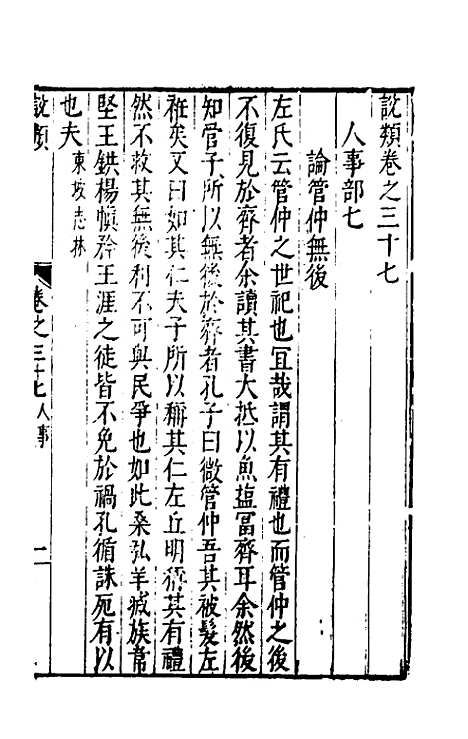 說類卷之三十七
人事部七
論管仲無後
左氏云管仲之世祀也宜哉謂其有禮也而管仲之後
不復見於齊者余讀其書大抵以魚塩冨齊耳余然後
知管子所以無後於齊者孔子曰微管仲吾其被髮左
衽矣又曰如其仁夫子所以稱其仁左丘明稱其有禮
然不救其無後利不可與民爭也如此桑弘羊滅族韋
堅王鉷楊慎矜王涯之徒皆不免於禍孔循誅死有以
也夫東坡志林
說類
卷之三十七人事